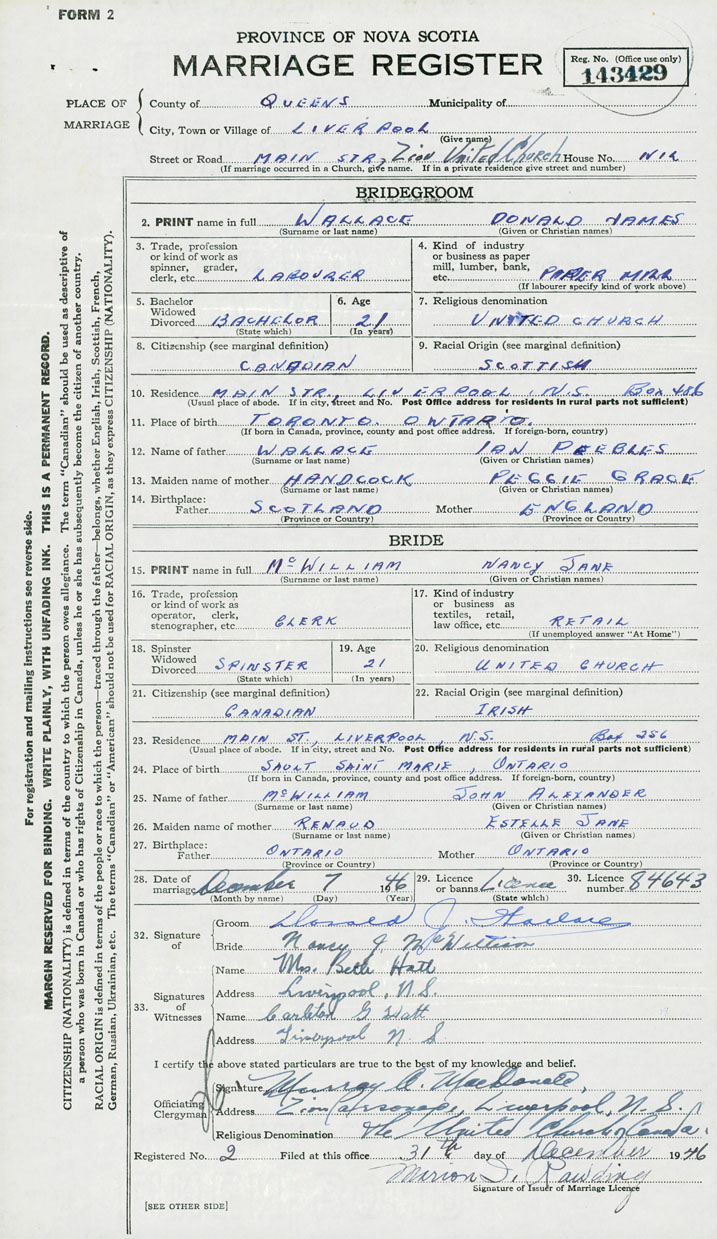 FORM 2
PROVINCE OF NOVA SCOTIA
MARRIAGE REGISTER
Reg. No. (Office use only)
143429
PLACE OF MARRIAGE
County of QUEENS Municipality of
City, Town or Village of LIVERPOOL
(Give name)
Street or Road MAIN STR, Zion United Church House No. NIL
(If marriage occurred in a Church, give name. If in a private residence give street and number)
BRIDEGROOM
2. PRINT name in full WALLACE DONALD JAMES
(Surname or last name) (Given or Christian names)
3. Trade, profession or kind of work as spinner, grader, clerk, etc. LABOURER
4. Kind of industry or business as paper mill, lumber, bank, etc. PAPER MILL
(If labourer specify kind of work above)
5. Bachelor Widowed Divorced BACHELOR
(State which)
6. Age 21
(In years)
7. Religious denomination
UNITED CHURCH
8. Citizenship (see marginal definition)
CANADIAN
9. Racial Origin (see marginal definition)
SCOTTISH
10. Residence MAIN STR., LIVERPOOL N.S. BOX 486
(Usual place of abode. If in city, street and No. Post Office address for residents in rural parts not sufficient)
11. Place of birth TORONTO. ONTARIO.
(If born in Canada, province, county and post office address. If foreign-born, country)
12. Name of father WALLACE IAN PEEBLES
(Surname or last name) (Given or Christian names)
13. Maiden name of mother HANDCOCK PEGGIE GRACE
(Surname or last name) (Given or Christian names)
14. Birthplace:
Father SCOTLAND Mother ENGLAND
(Province or Country) (Province or Country)
BRIDE
15. PRINT name in full McWILLIAM NANCY JANE
(Surname or last name) (Given or Christian names)
16. Trade, profession or kind of work as operator, clerk, stenographer, etc. CLERK
17. Kind of industry or business as textiles, retail, law office, etc. RETAIL
(If unemployed answer "At Home")
18. Spinster Widowed Divorced SPINSTER
(State which)
19. Age 21
(In years)
20. Religious denomination
UNITED CHURCH
21. Citizenship (see marginal definition)
CANADIAN
22. Racial Origin (see marginal definition)
IRISH
23. Residence MAIN ST., LIVERPOOL, N.S. BOX 256
(Usual place of abode. If in city, street and No. Post Office address for residents in rural parts not sufficient)
24. Place of birth SAULT SAINT MARIE, ONTARIO
(If born in Canada, province, county and post office address. If foreign-born, country)
25. Name of father McWILLIAM JOHN ALEXANDER
(Surname or last name) (Given or Christian names)
26. Maiden name of mother RENAUD ESTELLE JANE
(Surname or last name) (Given or Christian names)
27. Birthplace:
Father ONTARIO Mother ONTARIO
(Province or Country) (Province or Country)
28. Date of marriage December 7 1946
(Month by name) (Day) (Year)
29. Licence or banns Licence
(State which)
30. Licence number 84643
32. Signature of
Groom Donald J. Wallace
Bride Nancy J. McWilliam
33. Signatures of Witnesses
Name Mrs. Beth Hatt
Address Liverpool, N.S.
Name Carleton G Hatt
Address Liverpool N S
I certify the above stated particulars are true to the best of my knowledge and belief.
Officiating Clergyman
Signature Murray A. MacDonald,
Address Zion Parsonage, Liverpool, N.S.
Religious Denomination The United Church of Canada.
Registered No. 2 Filed at this office 31th day of December 1946
Signature of Issuer of Marriage Licence
[SEE OTHER SIDE]
For registration and mailing instructions see reverse side.
MARGIN RESERVED FOR BINDING. WRITE PLAINLY, WITH UNFADING INK. THIS IS A PERMANENT RECORD.
CITIZENSHIP (NATIONALITY) is defined in terms of the country to which the person owes allegiance. The term "Canadian" should be used as descriptive of
a person who was born in Canada or who has rights of Citizenship in Canada, unless he or she has subsequently become the citizen of another country.
RACIAL ORIGIN is defined in terms of the people or race to which the person—traced through the father—belongs, whether English, Irish, Scottish, French,
German, Russian, Ukrainian, etc. The terms "Canadian" or "American" should not be used for RACIAL ORIGIN, as they express CITIZENSHIP (NATIONALITY).